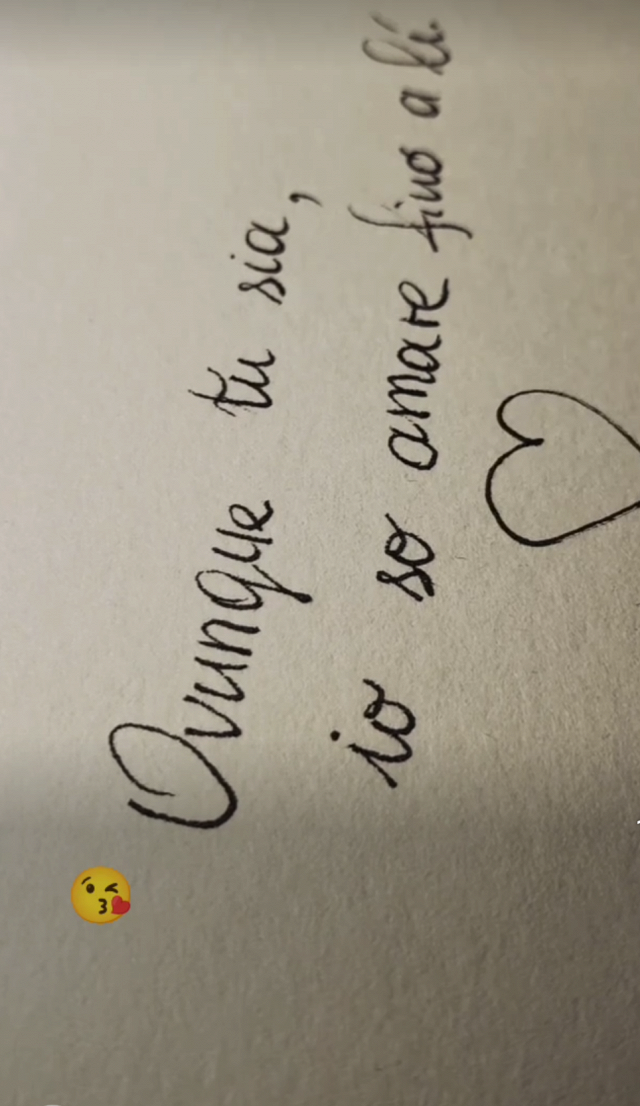 Ovunque tu sia,
io so amare fino a lí.